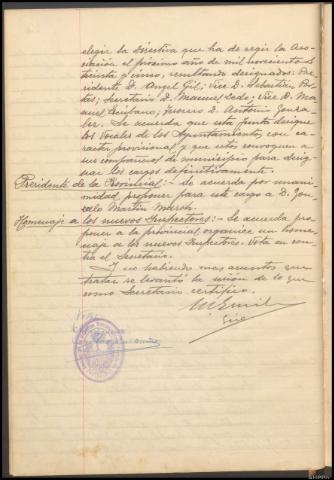 elegir la Directiva que ha de regir la Aso-
ciación el próximo año de mil novecientos
treinta y uno, resultando designados: Pre-
sidente D. Angel Gil; Vice D. Sebastián
Secretario D. Manuel Lado; Vice D. Ma-
nuel Tesorero D. Antonio Gonza-
lez. Se acuerda que esta Junta designe
los Vocales de los Ayuntamientos, con ca-
racter provisional y que estos convoquen a
sus compañeros de municipio para desig-
nar los cargos definitivamente.
Presidente de la Provincial:- Se acuerda por unani-
midad proponer para este cargo a D. Gon-
zalo Martín March.
Homenaje a los nuevos Inspectores:- Se acuerda pro-
poner a la provincial organice un home-
naje a los nuevos Inspectores. Vota en con-
tra el Secretario.
Y no habiendo mas asuntos que
tratar se levantó la sesión de lo que
como Secretario certifico.